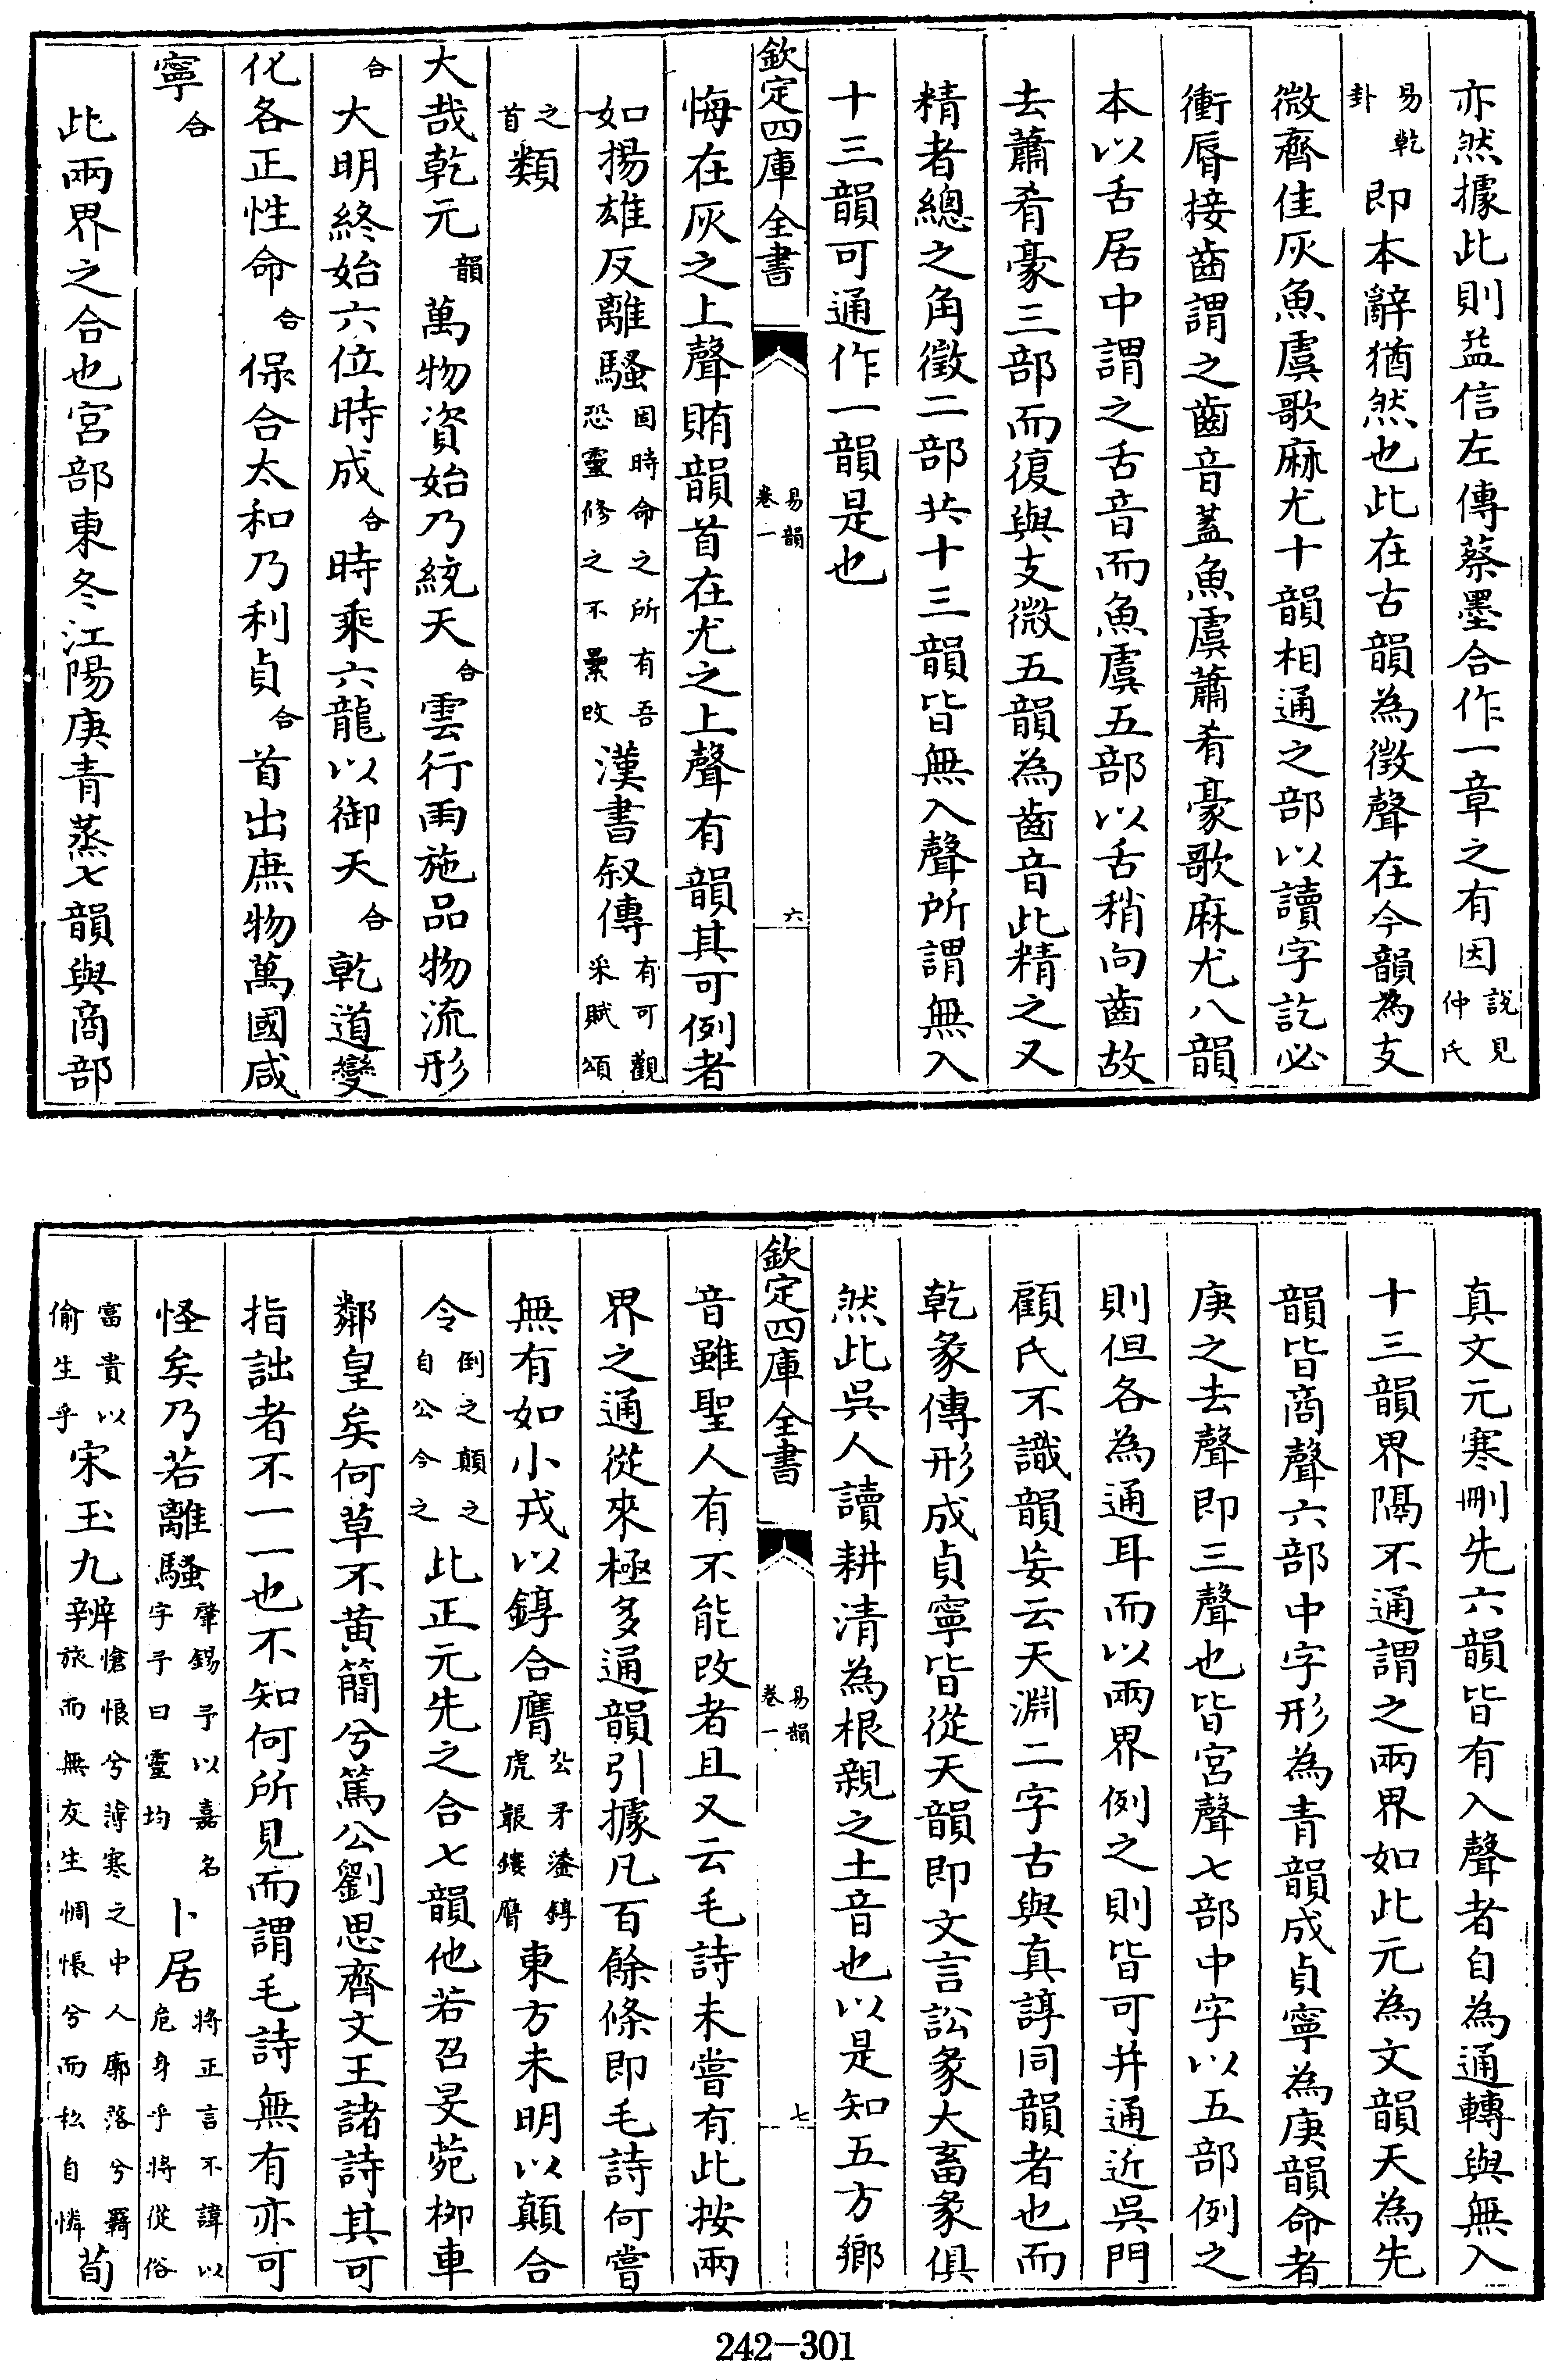 亦然據此則益信左傳蔡墨合作一章之有因說見仲氏
易乾卦即本辭猶然也此在古韻為徵聲在今韻為支
微齊佳灰魚虞歌麻尤十韻相通之部以讀字訖必
衝脣接齒謂之齒音蓋魚虞蕭肴豪歌麻尤八韻
本以舌居中謂之舌音而魚虞五部以舌稍向齒故
去蕭肴豪三部而復與支微五韻為齒音此精之又
精者總之角徵二部共十三韻皆無入聲所謂無入
十三韻可通作一韻是也
欽定四庫全書
易韻卷一
六
悔在灰之上聲賄韻首在尤之上聲有韻其可例者
如揚雄反離騷固時命之所有吾恐靈修之不纍改漢書叙傳有可觀采賦頌
之首類
大哉乾元韻萬物資始乃統天合雲行雨施品物流形
合大明終始六位時成合時乘六龍以御天合乾道變
化各正性命合保合太和乃利貞合首出庶物萬國咸
寧合
此兩界之合也宮部東冬江陽庚青蒸七韻與商部
真文元寒刪先六韻皆有入聲者自為通轉與無入
十三韻界隔不通謂之兩界如此元為文韻天為先
韻皆商聲六部中字形為青韻成貞寧為庚韻命者
庚之去聲即三聲也皆宮聲七部中字以五部例之
則但各為通耳而以兩界例之則皆可并通近吳門
顧氏不識韻妄云天淵二字古與真諄同韻者也而
乾彖傳形成貞寧皆從天韻即文言訟彖大畜彖俱
然此吳人讀耕清為根親之土音也以是知五方鄉
欽定四庫全書
易韻卷一
七
音雖聖人有不能改者且又云毛詩未嘗有此按兩
界之通從來極多通韻引據凡百餘條即毛詩何嘗
無有如小戎以錞合膺厹矛鋈錞虎韔鏤膺東方未明以顛合
令倒之顛之自公令之此正元先之合七韻他若召旻菀栁車
鄰皇矣何草不黃簡兮篤公劉思齊文王諸詩其可
指詘者不一一也不知何所見而謂毛詩無有亦可
怪矣乃若離騷肇錫予以嘉名字予曰靈均卜居將正言不諱以危身乎將從俗
富貴以偷生乎宋玉九辨愴悢兮薄寒之中人廓落兮羇旅而無友生惆悵兮而私自憐荀
242-301